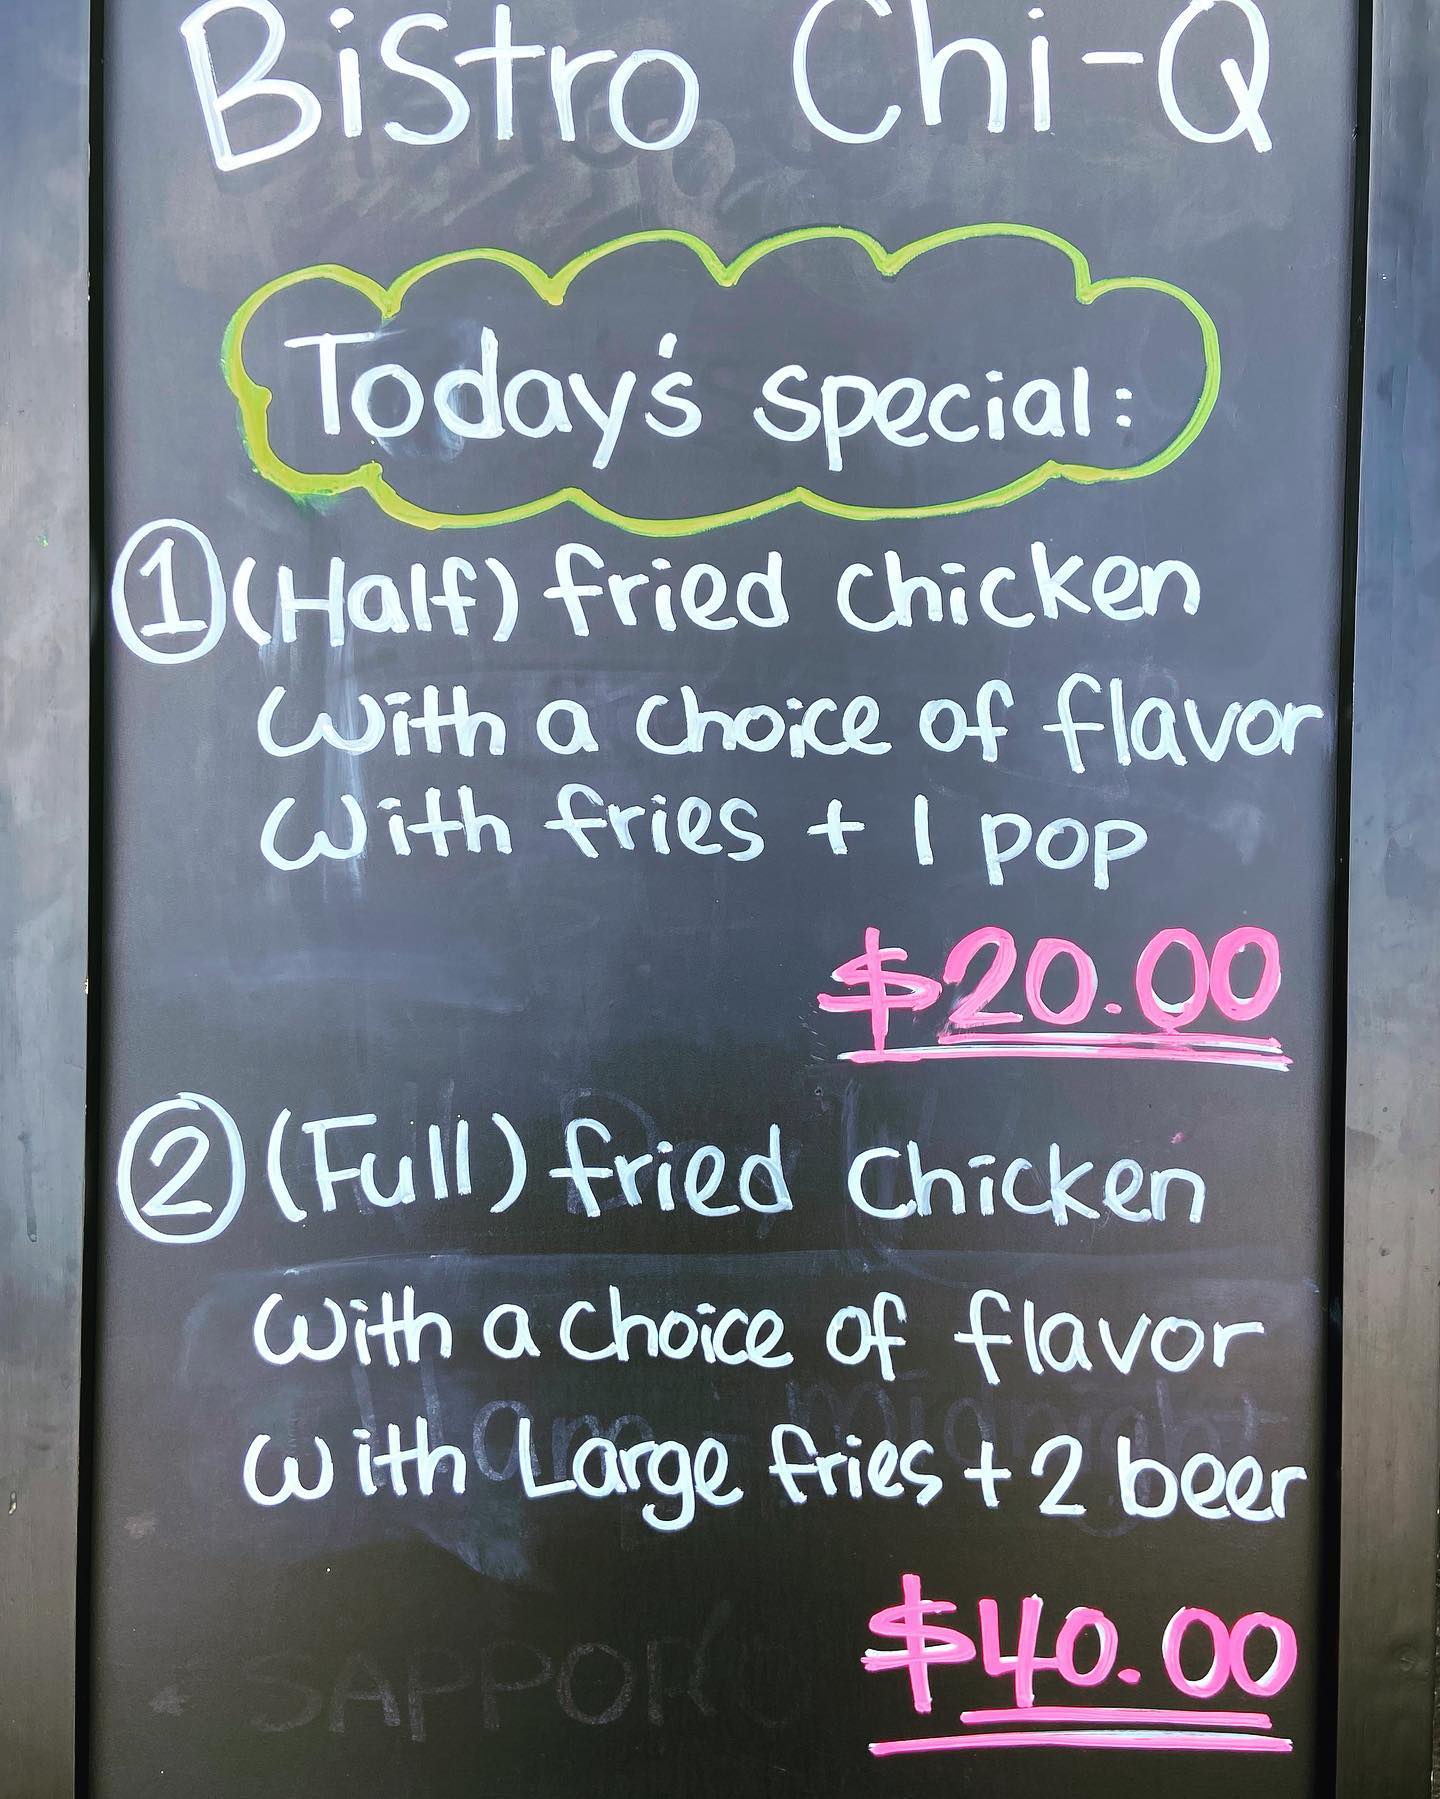 Bistro Chi-Q
Today's special:
1 (Half) fried chicken
with a choice of flavor
with fries + 1 pop
$20.00
2 (Full) fried chicken
with a choice of flavor
with Large fries + 2 beer
$40.00